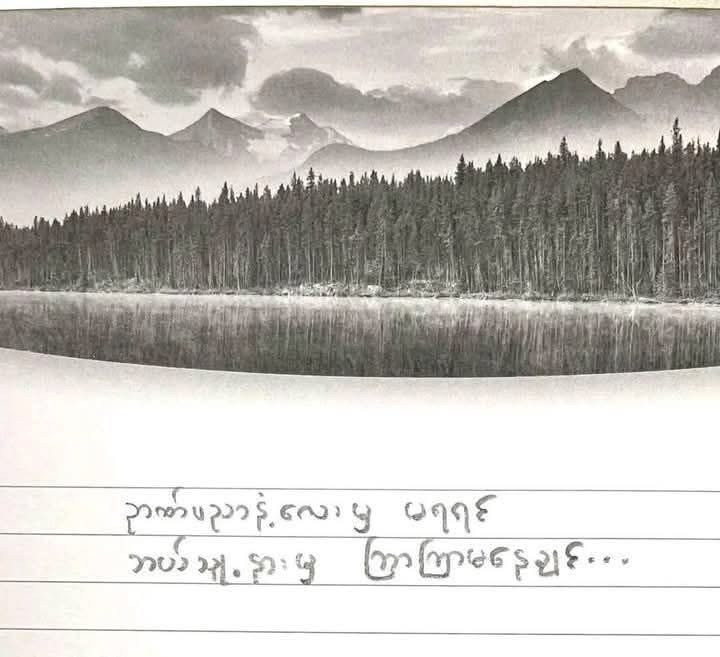 ဉာဏ်ပညာနဲ့လေးမှ မရရင်
ဘယ်သူ့နားမှ ကြာကြာမနေချင်...